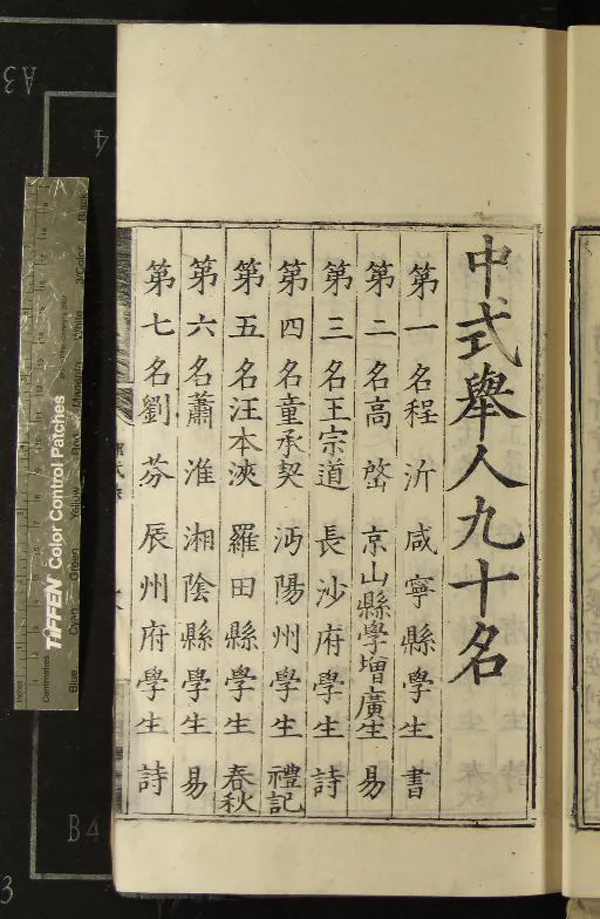 中式舉人九十名
第一名程沂咸寧縣學生書
第二名高嵤京山縣學增廣生易
第三名王宗道長沙府學生詩
第四名童承契沔陽州學生禮記
第五名汪本浹羅田縣學生春秋
第六名蕭淮湘陰縣學生易
第七名劉芬辰州府學生詩
TIFFEN Color Control Patches
Blue
Cyan
Green
Yellow
Red
Magenta
White
3/Color
Black
Inches
Centimetres
A3
B4